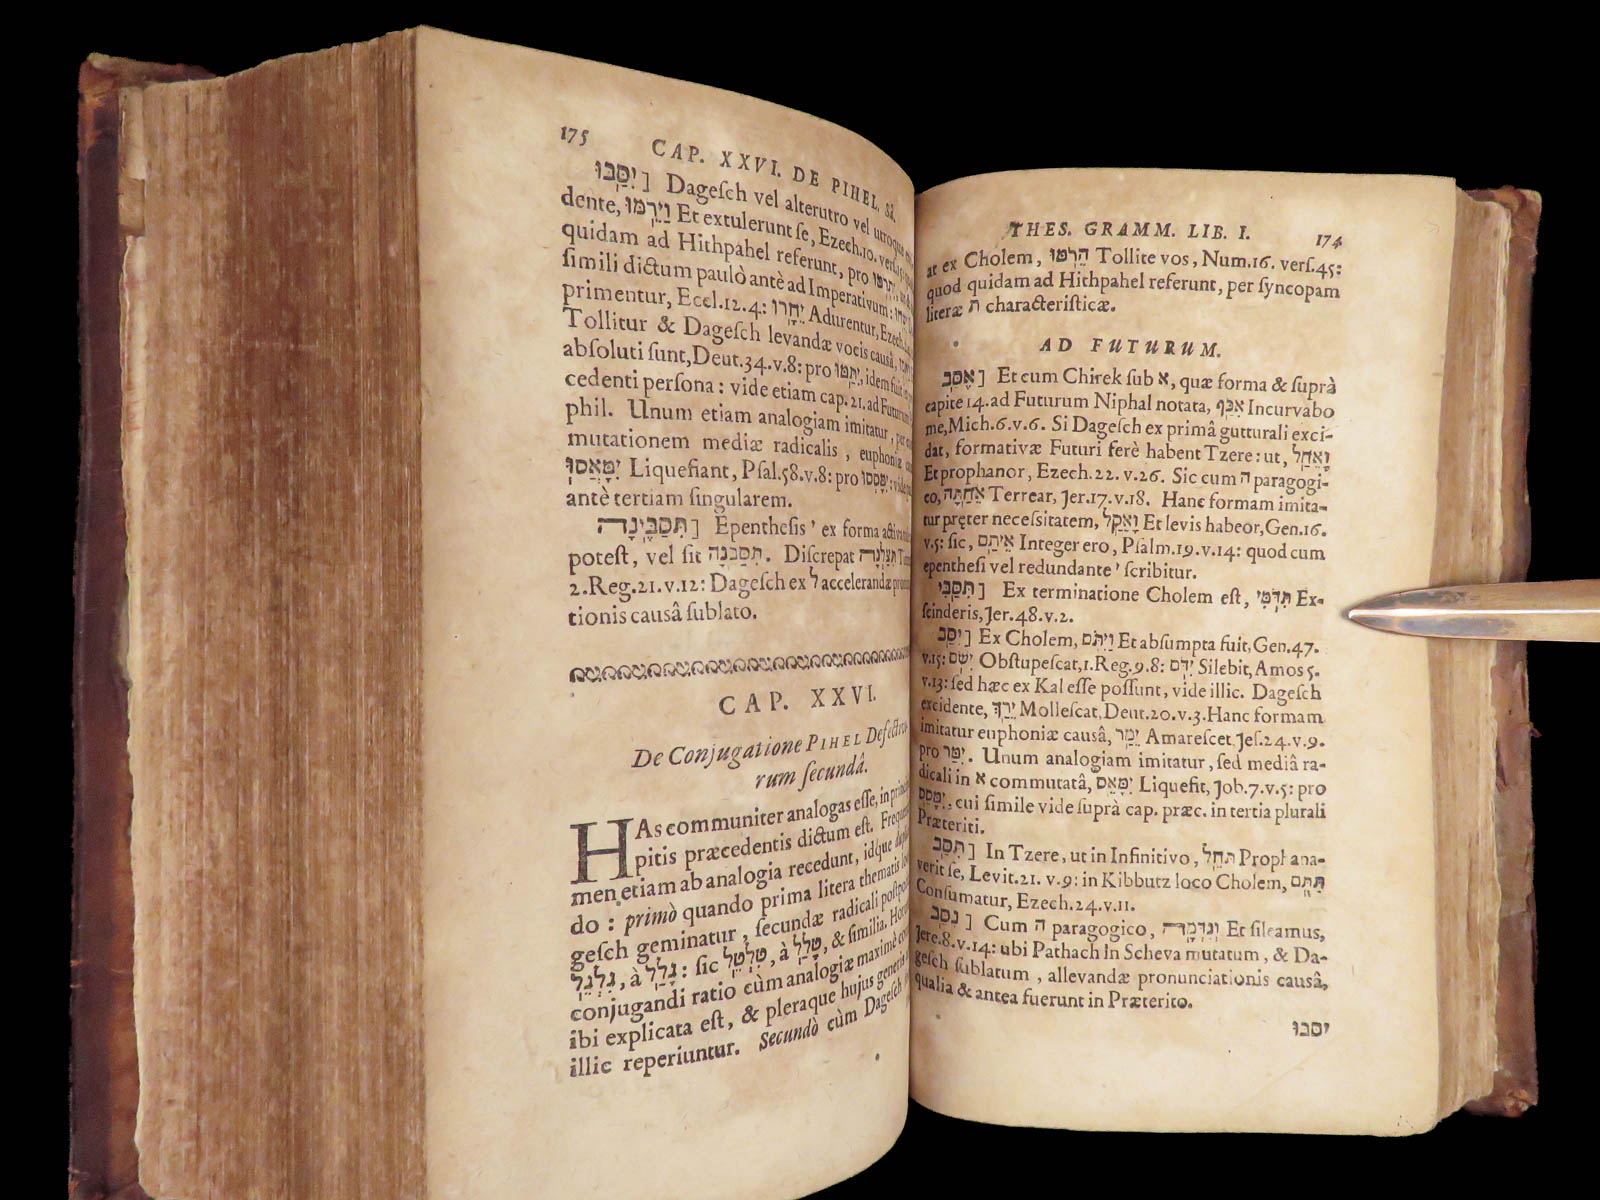 THES. GRAMM. LIB. I. 174
at ex Cholem, הֵרֹמּוּ Tollite vos, Num.16. verſ.45:
quod quidam ad Hithpahel referunt, per ſyncopam
literæ ת characteriſticæ.
AD FUTURUM.
אֶסַּב] Et cum Chirek ſub א, quæ forma & ſuprà
capite 14. ad Futurum Niphal notata, אִכַּף Incurvabo
me, Mich.6.v.6. Si Dageſch ex primâ gutturali exci-
dat, formativæ Futuri ferè habent Tzere: ut, וָאֵחַל
Et prophanor, Ezech.22.v.26. Sic cum ה paragogi-
co, אֵחַתָּה Terrear, Jer.17.v.18. Hanc formam imita-
tur pręter neceſſitatem, וָאֵקַל Et levis habeor, Gen.16.
v.5: ſic, אֵיתָם Integer ero, Pſalm.19.v.14: quod cum
epentheſi vel redundante י ſcribitur.
תִּסַּבִּי] Ex terminatione Cholem eſt, תִּדֹּמִּי Ex-
ſcinderis, Jer.48.v.2.
יִסַּב] Ex Cholem, וַיִּתֹּם Et abſumpta fuit, Gen.47.
v.15: יִשֹּׁם Obſtupeſcat, 1.Reg.9.8: יִדֹּם Silebit, Amos 5.
v.13: ſed hæc ex Kal eſſe poſſunt, vide illic. Dageſch
excidente, יֵרַךְ Molleſcat, Deut.20.v.3. Hanc formam
imitatur euphoniæ causâ, יֵמַר Amareſcet, Jeſ.24.v.9.
pro יִמַּר. Unum analogiam imitatur, ſed mediâ ra-
dicali in א commutatâ, יִמָּאֵס Liquefit, Job.7.v.5: pro
יִמָּסֵס, cui ſimile vide ſuprà cap. præc. in tertia plurali
Præteriti.
תִּסַּב] In Tzere, ut in Infinitivo, תֵּחֵל Prophana-
verit ſe, Levit.21. v.9: in Kibbutz loco Cholem, תִּתֻּם
Conſumatur, Ezech.24.v.11.
נִסַּב] Cum ה paragogico, וְנִדְּמָה Et ſileamus,
Jere.8.v.14: ubi Pathach in Scheva mutatum, & Da-
geſch ſublatum, allevandæ pronunciationis causâ,
qualia & antea fuerunt in Præterito.
יסבו
175 CAP. XXVI. DE PIHEL. &c.
יִסַּבּוּ] Dageſch vel alterutro vel utroque
dente, וַיֵּרֹמּוּ Et extulerunt ſe, Ezech.10. verſ.
quidam ad Hithpahel referunt, pro
ſimili dictum paulò antè ad Imperativum:
primentur, Eccl.12.4: יֵחָרוּ Adurentur, Ezech.
Tollitur & Dageſch levandæ vocis causâ,
abſoluti ſunt, Deut.34.v.8: pro יִתַּמּוּ, idem fuit in
cedenti perſona: vide etiam cap.21. ad Futurum
phil. Unum etiam analogiam imitatur, per
mutationem mediæ radicalis, euphoniæ
יִמָּאֲסוּ Liquefiant, Pſal.58.v.8: pro יִמָּסְסוּ: vide
antè tertiam ſingularem.
תִּסַּבֶּינָה] Epentheſis י ex forma activa
poteſt, vel ſit תִּסַּבְנָה. Diſcrepat תִּצַּלְנָה
2.Reg.21.v.12: Dageſch ex ל accelerandæ
tionis causâ ſublato.
CAP. XXVI.
De Conjugatione PIHEL Defectivo-
rum ſecundâ.
HAs communiter analogas eſſe, in
pitis præcedentis dictum eſt.
men etiam ab analogia recedunt, idque
do: primò quando prima litera thematis
geſch geminatur, ſecundæ radicali
גִּלְגֵּל, à גָּלַל: ſic טִלְטֵל, à טָלַל, & ſimilia.
conjugandi ratio cùm analogiæ maximè
ibi explicata eſt, & pleraque hujus generis
illic reperiuntur. Secundò cùm Dageſch